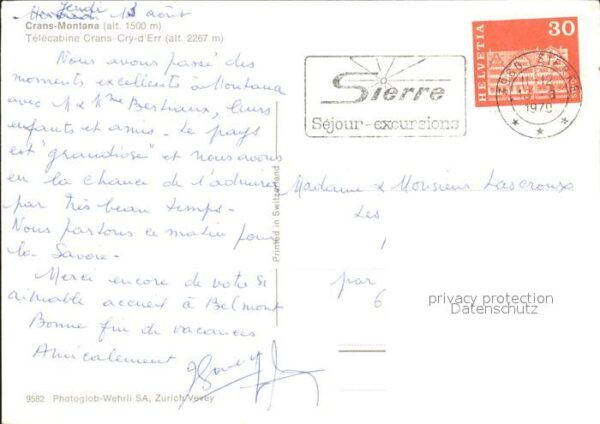 Jeudi 13 août
Crans-Montana (alt. 1500 m)
Télécabine Crans-Cry-d'Err (alt. 2267 m)
Nous avons passé des
moments excellents à Montana
avec M & Mme Bertiaux, leurs
enfants et amis - Le pays
est "grandiose" et nous avons
eu la chance de l'admirer
par très beau temps -
Nous partons ce matin pour
la Savoie -
Merci encore de votre si
aimable accueil à Belmont
Bonne fin de vacances
Amicalement
9582 Photoglob-Wehrli SA, Zurich/Vevey
Printed in Switzerland
Sierre
Séjour-excursions
HELVETIA
30
1970
Madame & Monsieur Lascroux
Les
par
6
privacy protection
Datenschutz